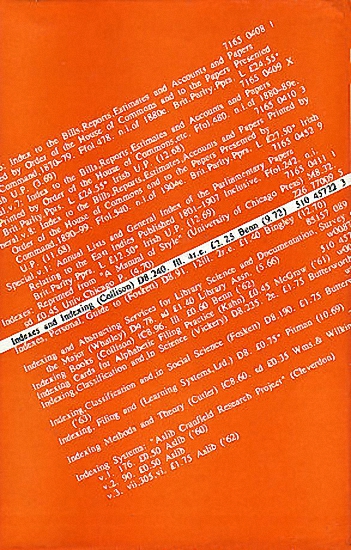 Index to the Bills,Reports,Estimates and Accounts and Papers 7165 0408 1
by Order of the House of Commons and to the Papers Presented
Command,1870-79. Ffol.478. n.i.of 1880c. Brit.Parlty.Pprs. L £24.55"
U.P. (3.69) 7165 0409 X
v.7. Index to the Bills,Reports,Estimates and Accounts and Papers
Printed by Order of the House of Commons,etc. Ffol.480. n.i.of 1880-89e.
Brit.Parlty.Pprs. L £24.55" Irish U.P. (12.68) 7165 0410 3
v.8. Index to the Bills,Reports,Estimates and Accounts and Papers Printed by
Order of the House of Commons and to the Papers Presented by
Command 1890-99. Ffol.540. n.i.of 1904e. Brit.Parlty.Pprs. L £27.50" Irish
U.P. (11.68) 7165 0452 9
Special v.1: Annual Lists and General Index of the Parliamentary Papers
Relating to the East Indies Published 1801-1907 Inclusive. Ffol.242. n.i.
Brit.Parlty.Pprs. L £12.50" Irish U.P. 7165 0411 1
Reprinted from "A Manual of Style" (University of Chicago Press) M8.52.
ed £0.45 Univ.Chicago P. (4.70) 226 77009 5
Indexes and Indexing (Collison) D8.240. fll. 4r.e. £2.25 Benn (9.72) 510 45722 3
Indexes, Personal, Guide to (Fosken) D8.91. 12ill. 2r.e. £1.40 Bingley (12.70)
Indexing and Abstracting Services for Library Science and Documentation, Survey
the Major (Whatley) D4.78. sd £1.40 Library Assn. (5.66)
Indexing Books (Collison) C8.96. fll. £0.60 Benn ('62)
Indexing Cards for Alphabetic Filing Practice (Kahn) £0.45 McGraw ('61)
Indexing,Classification and,in Science (Vickery) D8.235. 2e. £1.75 Butterworth
Indexing,Classification and,in Social Science (Fosken) D8.190. £1.75 Butterworth
('63)
Indexing, Filing and (Learning Systems,Ltd.) D8. £0.75" Pitman (10.69)
Indexing Methods and Theory (Cutler) IC8.60. sd £0.35 Wms.& Wilkin
Indexing Systems: "Aslib Cranfield Research Project" (Cleverdon)
v.1. 176. £0.50 Aslib ('60)
v.2. 90. £0.50 Aslib
v.3. vii.305.vi. £1.75 Aslib ('62)